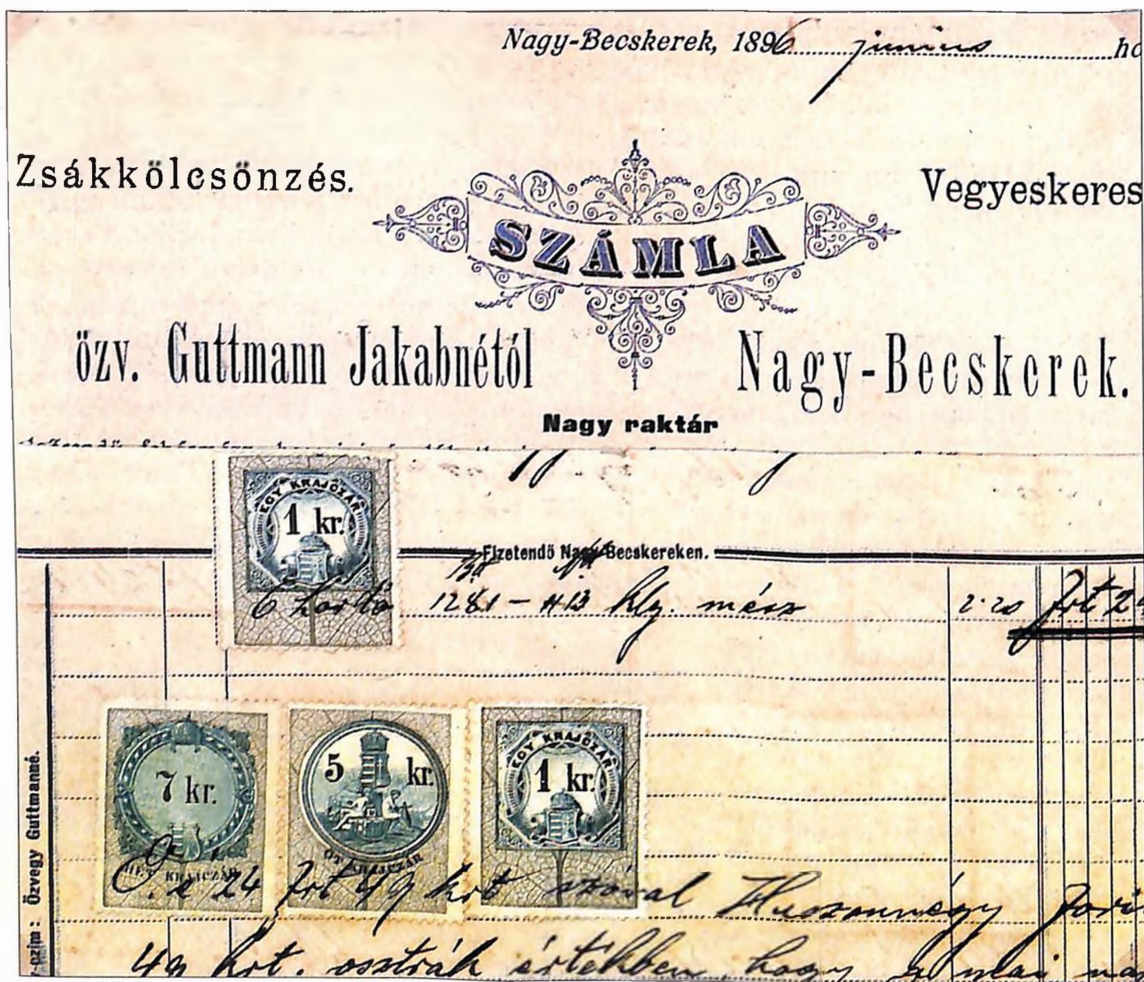 Nagy-Becskerek, 1896 junius
Zsákkölcsönzés.
Vegyeskeres
SZÁMLA
özv. Guttmann Jakabnétól
Nagy-Becskerek.
Nagy raktár
EGY KRAJCZÁR
1 kr.
Fizetendő Nagy-Becskereken.
6 1281 - 113 klg. mész 2.20 frt 24
7 kr.
HÉT KRAJCZÁR
5 kr.
ÖT KRAJCZÁR
EGY KRAJCZÁR
1 kr.
24 frt 49 krt szóval Huszonnégy fori
49 krt. osztrák értékben, hogy a mai na
Özvegy Guttmanné.